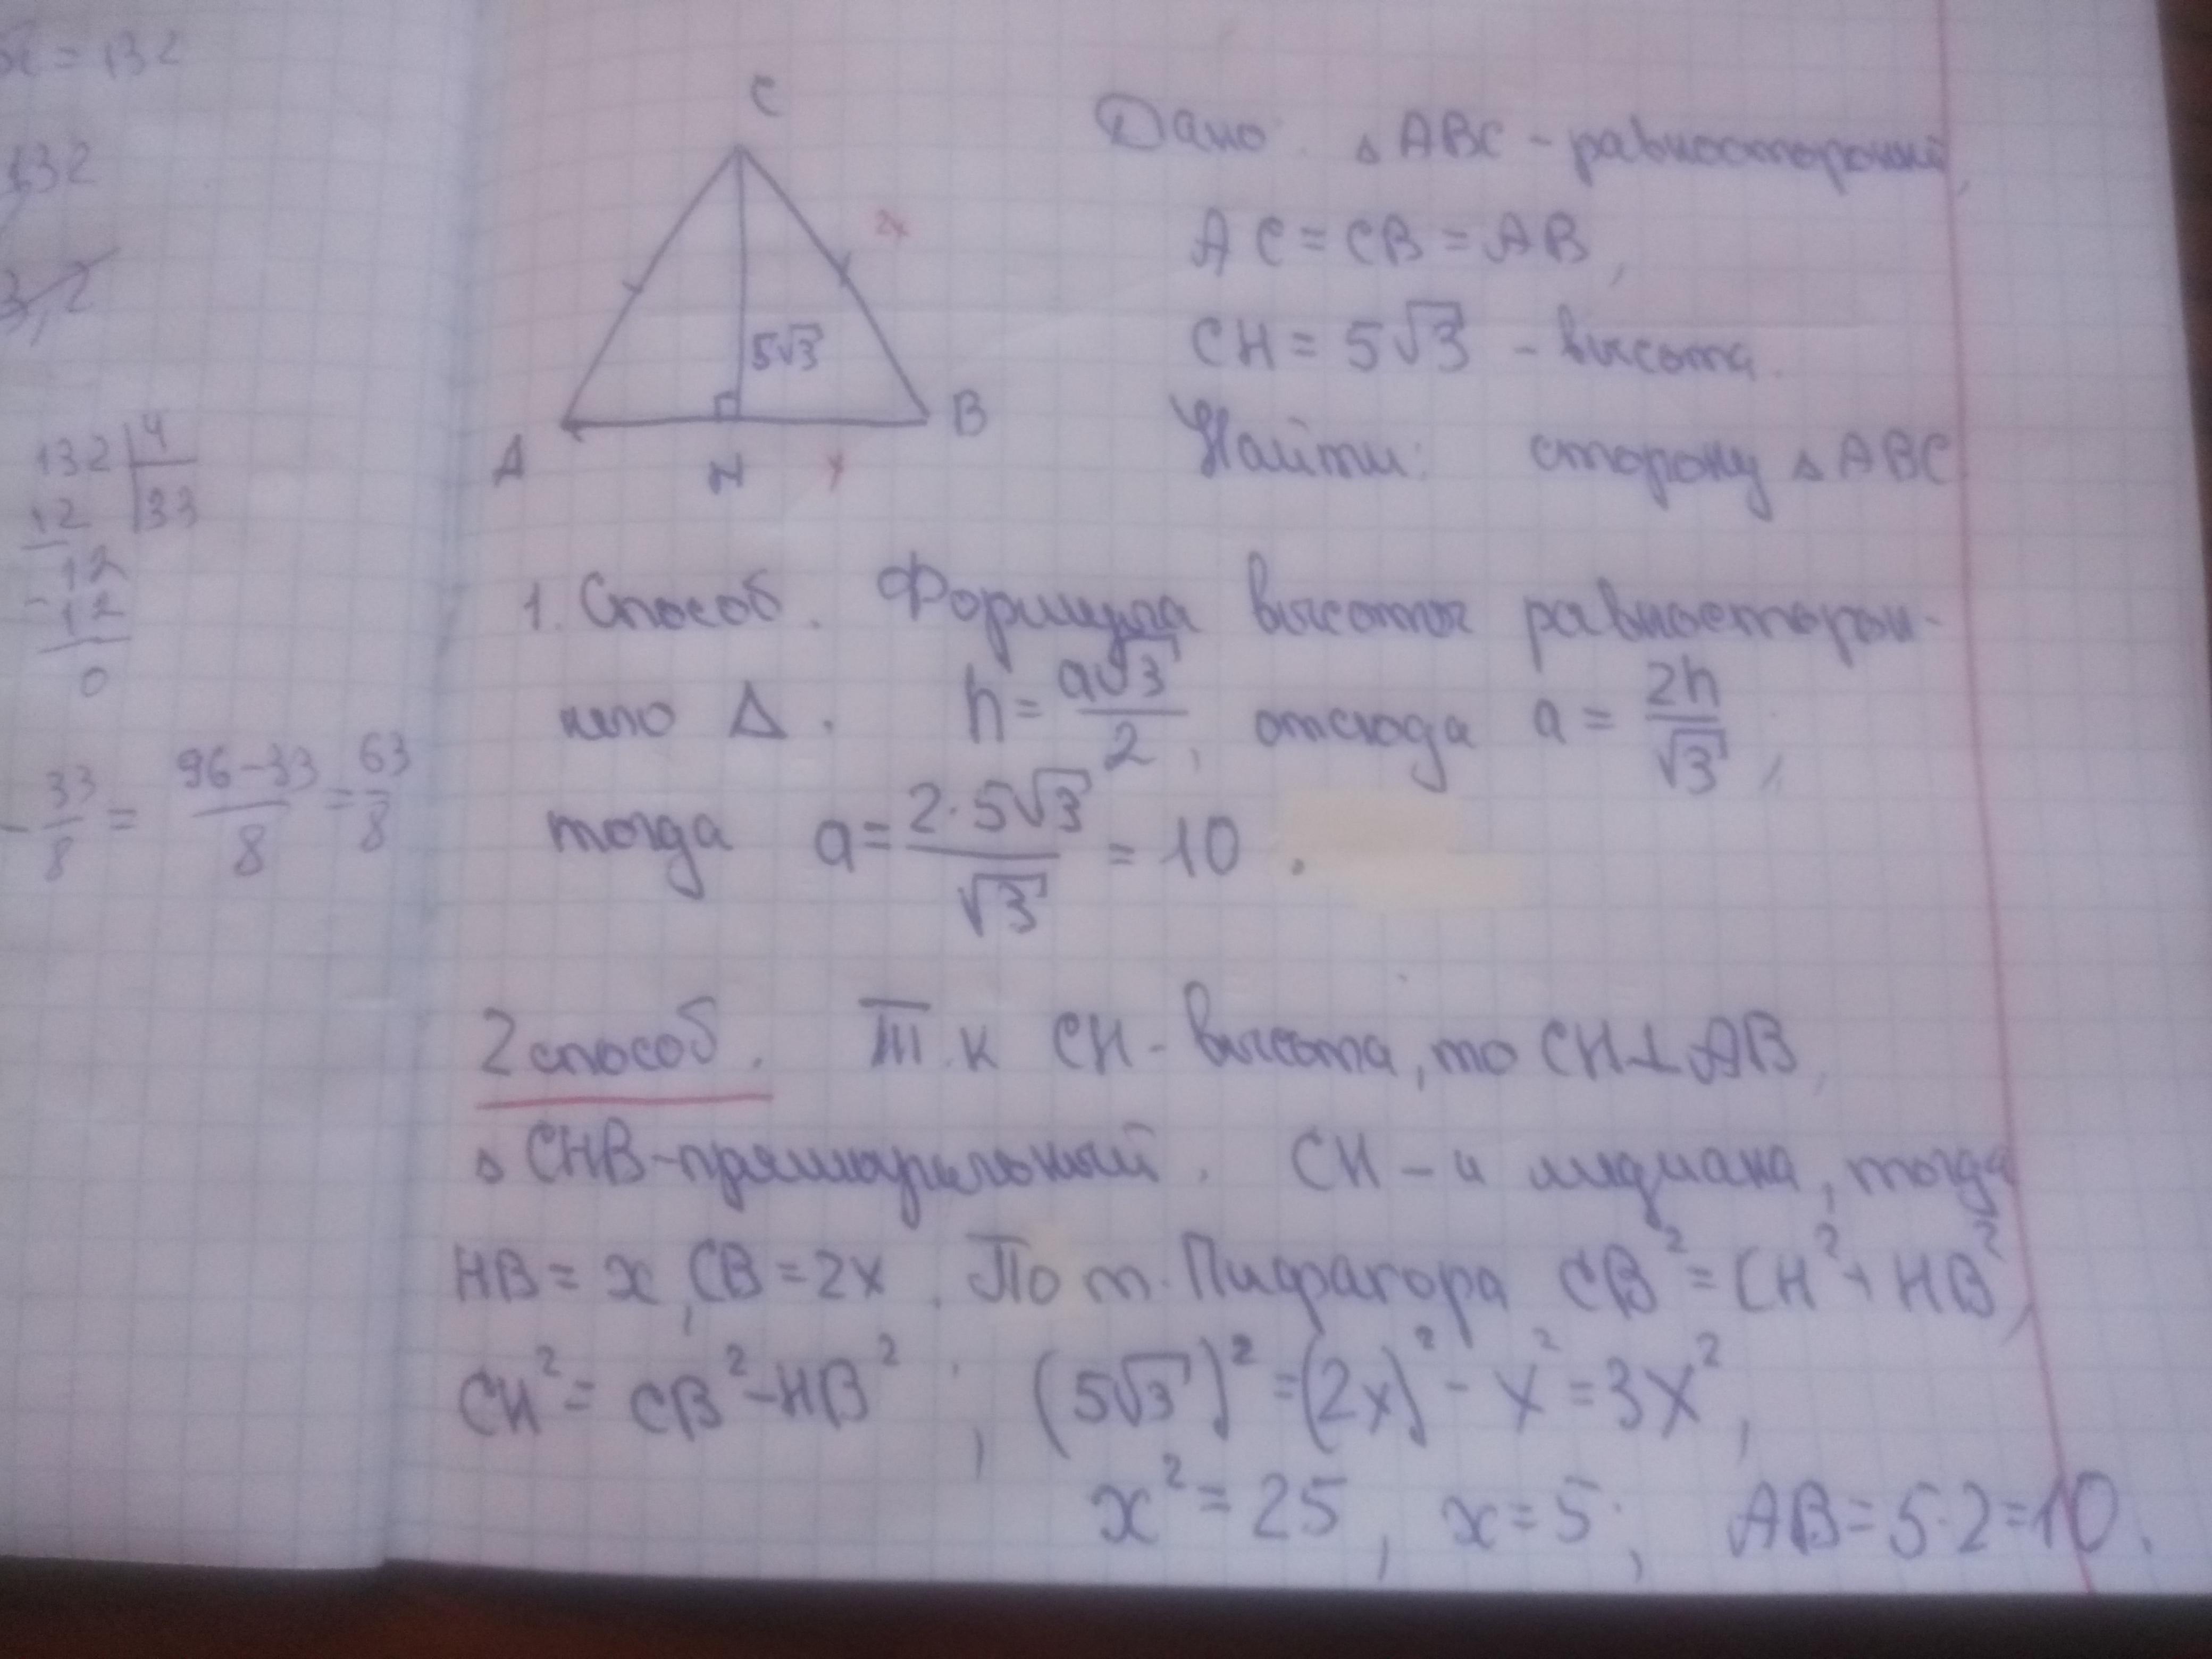 x = 132
132
3,2
132 | 4
12 33
- 12
12
0
- 33/8 = (96-33)/8 = 63/8
C
2x
5√3
A H x B
Дано: △ ABC - равносторонний,
AC = CB = AB,
CH = 5√3 - высота.
Найти: сторону △ ABC
1. Способ. Формула высоты равносторон-
него △. h = a√3/2, отсюда a = 2h/√3,
тогда a = 2·5√3/√3 = 10.
2 способ. Т.к CH - высота, то CH⊥AB,
△ CHB - прямоугольный. CH - и медиана, тогда
HB = x, CB = 2x. По т. Пифагора CB² = CH² + HB²,
CH² = CB² - HB², (5√3)² = (2x)² - x² = 3x²,
x² = 25, x = 5; AB = 5·2 = 10.